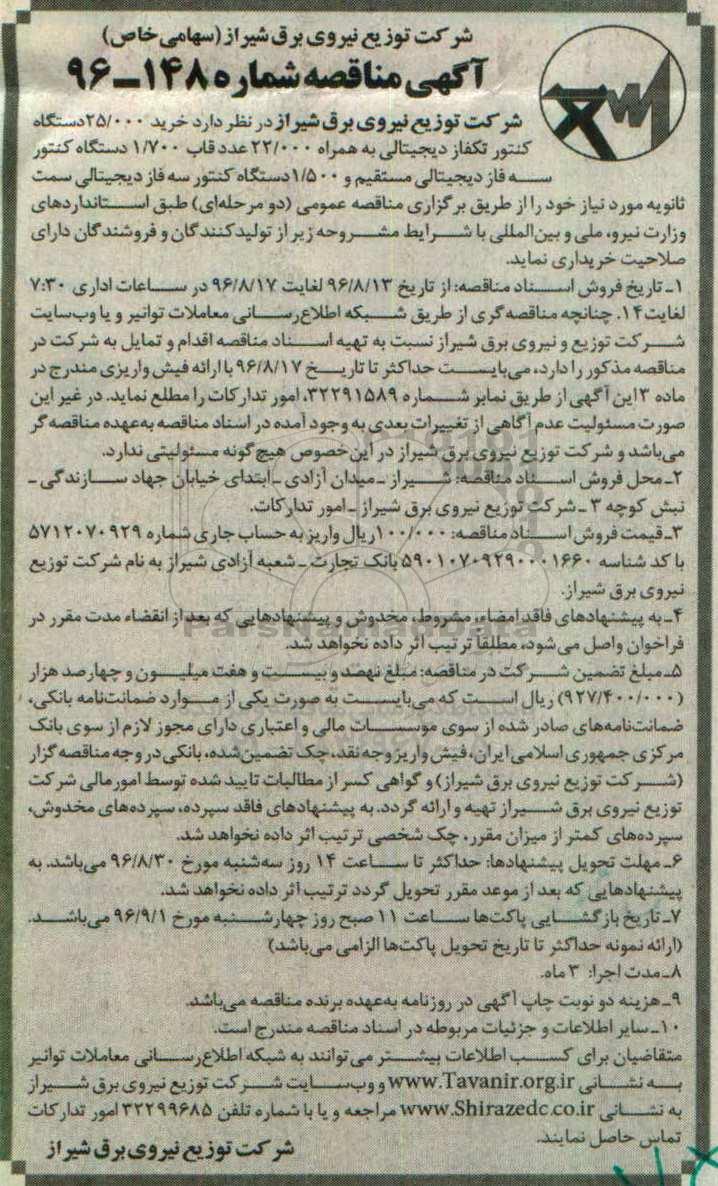 شرکت توزیع نیروی برق شیراز (سهامی خاص)
آگهی مناقصه شماره ۱۴۸-۹۶
شرکت توزیع نیروی برق شیراز در نظر دارد خرید ۲۵/۰۰۰ دستگاه
کنتور تکفاز دیجیتالی به همراه ۲۲/۰۰۰ عدد قاب ۱/۷۰۰ دستگاه کنتور
سه فاز دیجیتالی مستقیم و ۱/۵۰۰ دستگاه کنتور سه فاز دیجیتالی سمت
ثانویه مورد نیاز خود را از طریق برگزاری مناقصه عمومی (دو مرحله‌ای) طبق استانداردهای
وزارت نیرو، ملی و بین‌المللی با شرایط مشروحه زیر از تولیدکنندگان و فروشندگان دارای
صلاحیت خریداری نماید.
۱- تاریخ فروش اسناد مناقصه: از تاریخ ۹۶/۸/۱۳ لغایت ۹۶/۸/۱۷ در ساعات اداری ۷:۳۰
لغایت ۱۴. چنانچه مناقصه‌گری از طریق شبکه اطلاع‌رسانی معاملات توانیر و یا وب‌سایت
شرکت توزیع و نیروی برق شیراز نسبت به تهیه اسناد مناقصه اقدام و تمایل به شرکت در
مناقصه مذکور را دارد، می‌بایست حداکثر تا تاریخ ۹۶/۸/۱۷ با ارائه فیش واریزی مندرج در
ماده ۳ این آگهی از طریق نمابر شماره ۳۲۲۹۱۵۸۹، امور تدارکات را مطلع نماید. در غیر این
صورت مسئولیت عدم آگاهی از تغییرات بعدی به وجود آمده در اسناد مناقصه به‌عهده مناقصه گر
می‌باشد و شرکت توزیع نیروی برق شیراز در این‌خصوص هیچ گونه مسئولیتی ندارد.
۲- محل فروش اسناد مناقصه: شیراز - میدان آزادی - ابتدای خیابان جهاد سازندگی -
نبش کوچه ۳ - شرکت توزیع نیروی برق شیراز - امور تدارکات.
۳- قیمت فروش اسناد مناقصه: ۱۰۰/۰۰۰ ریال واریز به حساب جاری شماره ۵۷۱۲۰۷۰۹۲۹
با کد شناسه ۵۹۰۱۰۷۰۹۲۹۰۰۰۱۶۶۰ بانک تجارت - شعبه آزادی شیراز به نام شرکت توزیع
نیروی برق شیراز.
۴- به پیشنهادهای فاقد امضاء، مشروط، مخدوش و پیشنهادهایی که بعد از انقضاء مدت مقرر در
فراخوان واصل می‌شود، مطلقاً ترتیب اثر داده نخواهد شد.
۵- مبلغ تضمین شرکت در مناقصه: مبلغ نهصد و بیست و هفت میلیون و چهارصد هزار
(۹۲۷/۴۰۰/۰۰۰) ریال است که می‌بایست به صورت یکی از موارد ضمانت‌نامه بانکی،
ضمانت‌نامه‌های صادر شده از سوی موسسات مالی و اعتباری دارای مجوز لازم از سوی بانک
مرکزی جمهوری اسلامی ایران، فیش واریز وجه نقد، چک تضمین‌شده، بانکی در وجه مناقصه گزار
(شرکت توزیع نیروی برق شیراز) و گواهی کسر از مطالبات تایید شده توسط امور مالی شرکت
توزیع نیروی برق شیراز تهیه و ارائه گردد. به پیشنهادهای فاقد سپرده، سپرده‌های مخدوش،
سپرده‌های کمتر از میزان مقرر، چک شخصی ترتیب اثر داده نخواهد شد.
۶- مهلت تحویل پیشنهادها: حداکثر تا ساعت ۱۴ روز سه‌شنبه مورخ ۹۶/۸/۳۰ می‌باشد. به
پیشنهادهایی که بعد از موعد مقرر تحویل گردد ترتیب اثر داده نخواهد شد.
۷- تاریخ بازگشایی پاکت‌ها ساعت ۱۱ صبح روز چهارشنبه مورخ ۹۶/۹/۱ می‌باشد.
(ارائه نمونه حداکثر تا تاریخ تحویل پاکت‌ها الزامی می‌باشد)
۸- مدت اجرا: ۳ ماه.
۹- هزینه دو نوبت چاپ آگهی در روزنامه به‌عهده برنده مناقصه می‌باشد.
۱۰- سایر اطلاعات و جزئیات مربوطه در اسناد مناقصه مندرج است.
متقاضیان برای کسب اطلاعات بیشتر می‌توانند به شبکه اطلاع‌رسانی معاملات توانیر
به نشانی www.Tavanir.org.ir و وب‌سایت شرکت توزیع نیروی برق شیراز
به نشانی www.Shirazedc.co.ir مراجعه و یا با شماره تلفن ۳۲۲۹۹۶۸۵ امور تدارکات
تماس حاصل نمایند.
شرکت توزیع نیروی برق شیراز